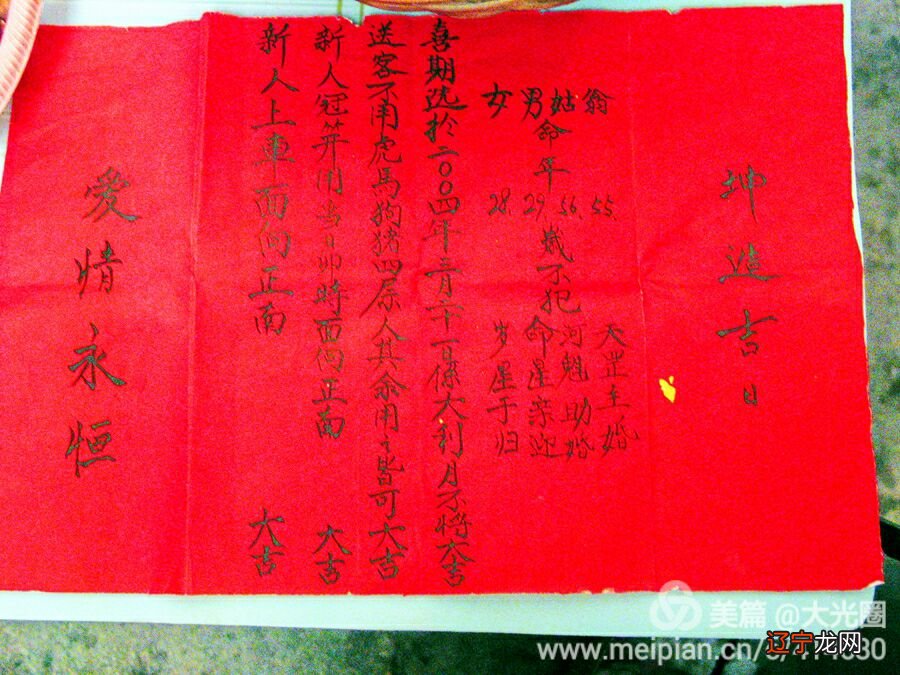 坤造吉日
翁 55. 天罡主婚
姑 56. 河魁助婚
命年 歲不犯
男 29. 命星亲迎
女 28. 岁星于归
喜期选於二〇〇四年三月二十一日係大利月不將大吉
送客不用虎馬狗猪四属人其余用之皆可大吉
新人冠笄用当日卯時面向正南 大吉
新人上車面向正南 大吉
愛情永恒
美篇 @大光圈
www.meipian.cn
辽宁龙网